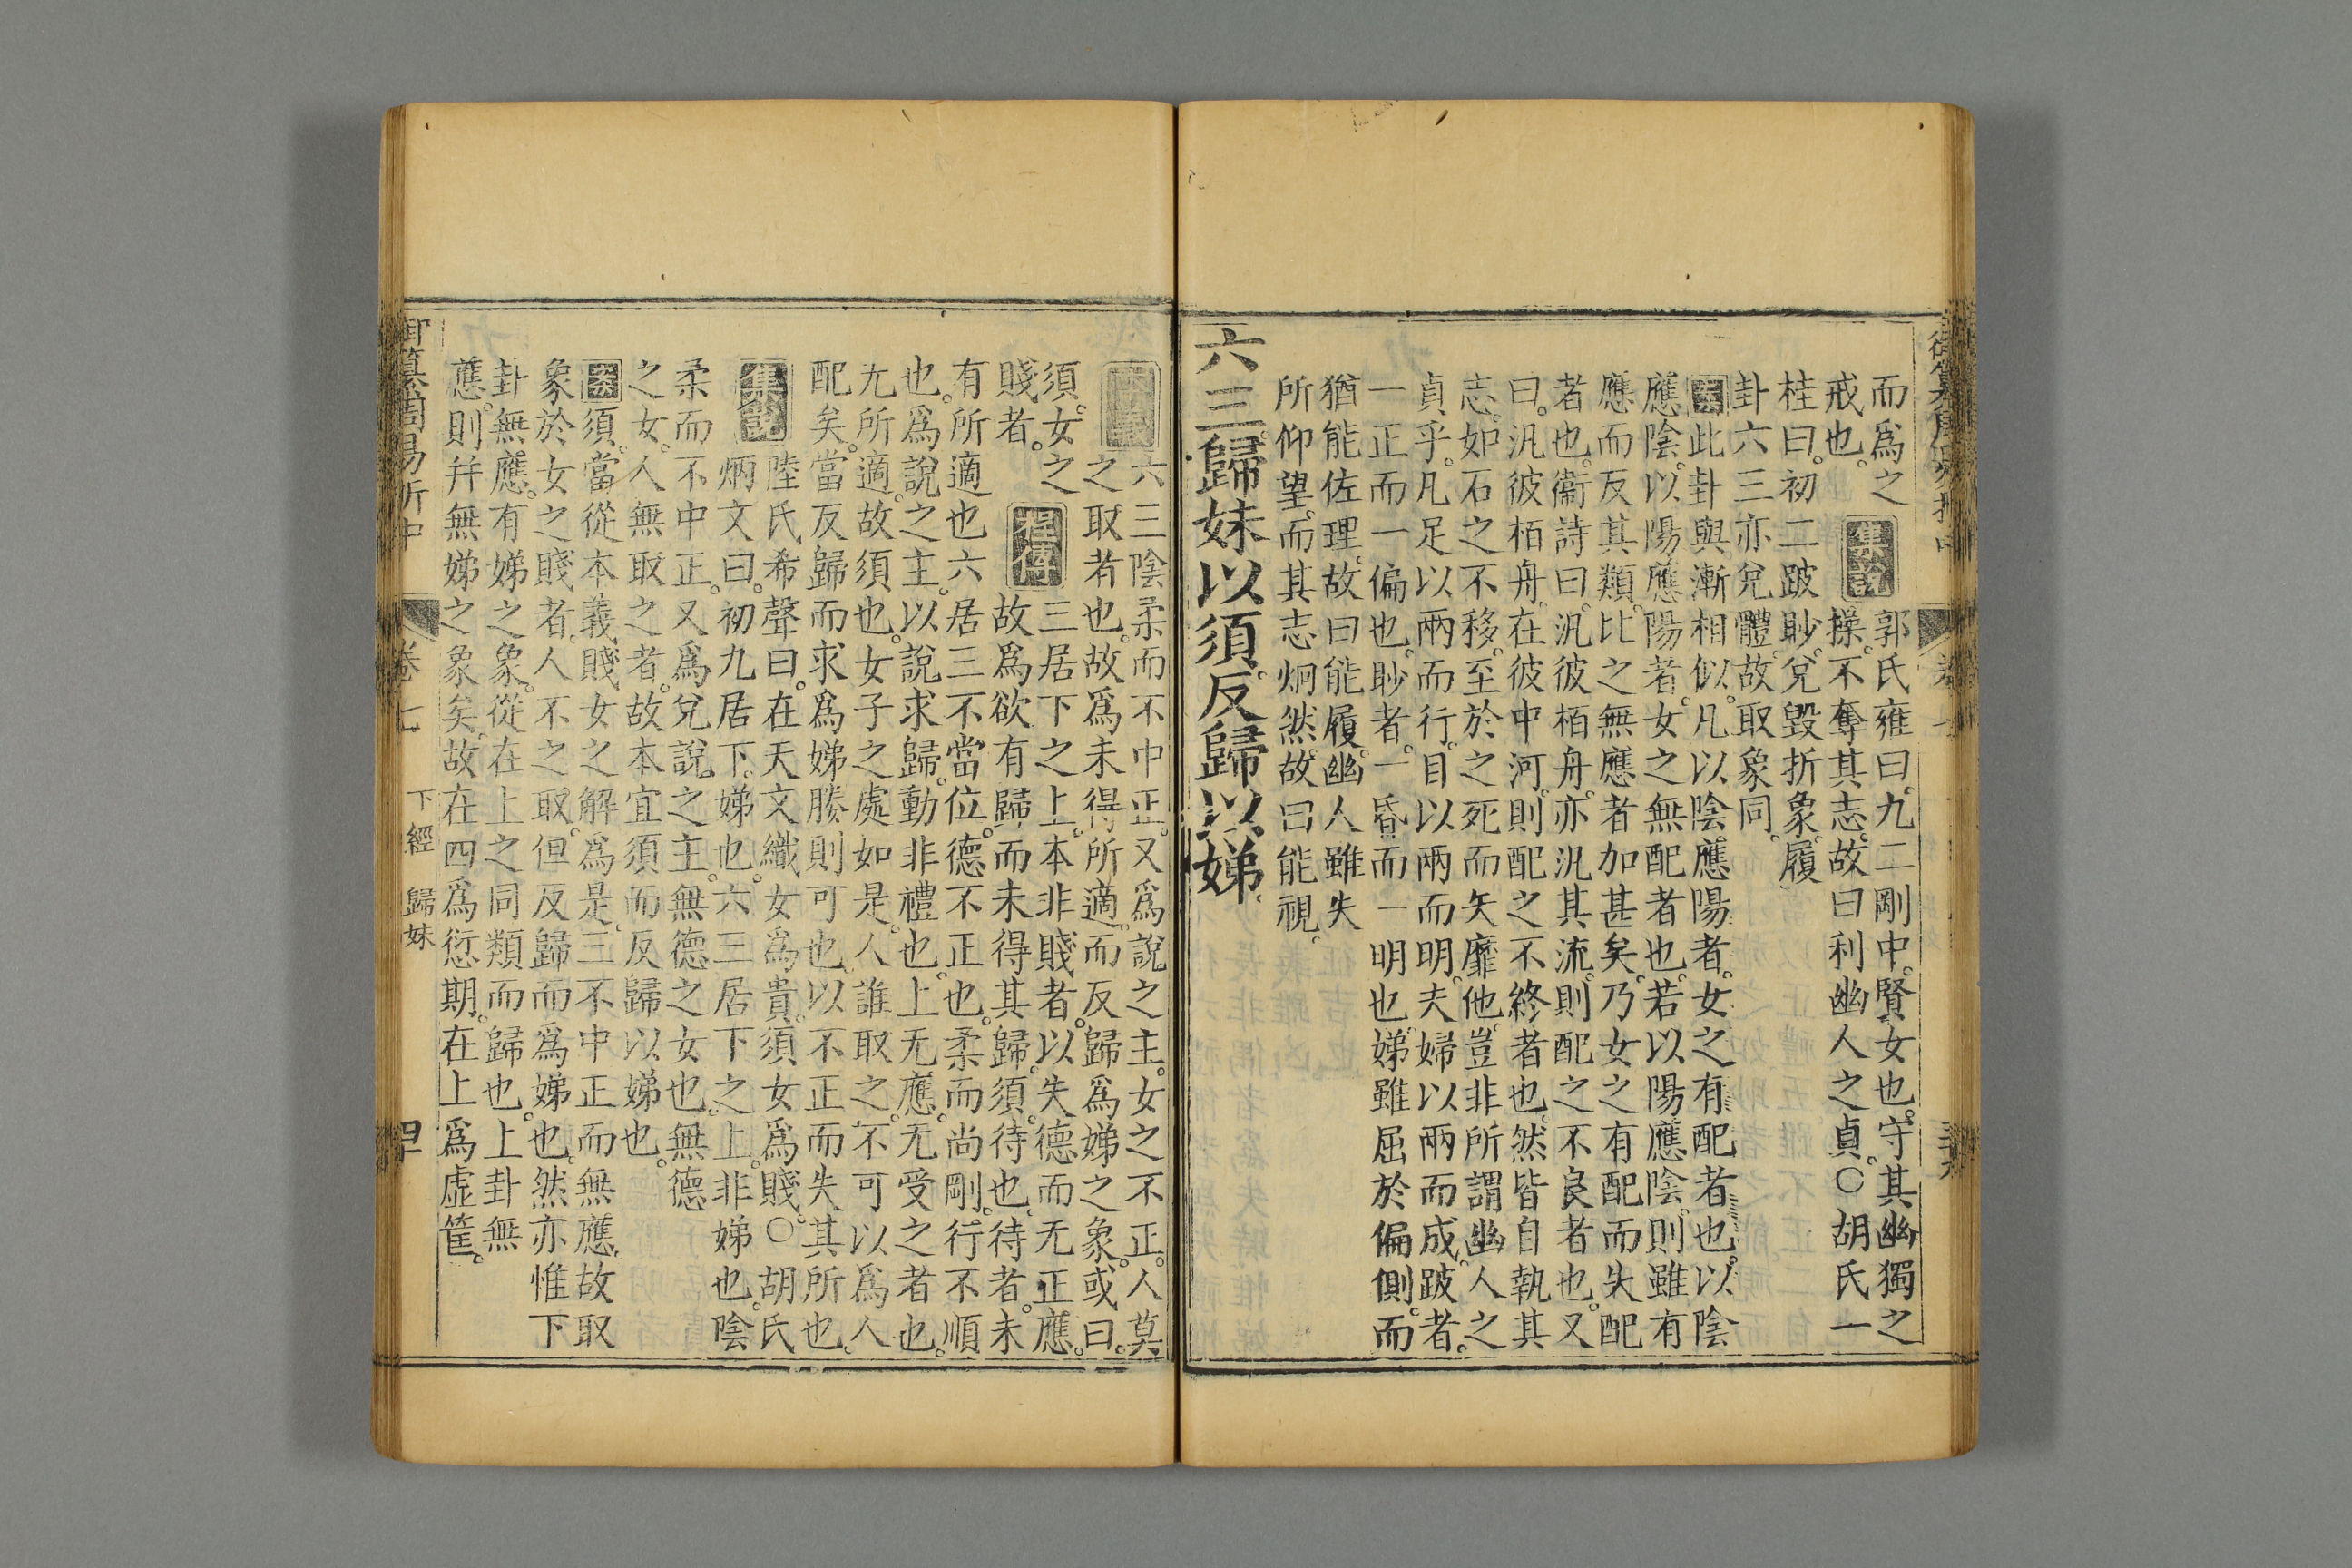 而爲之
戒也。
集說
郭氏雍曰。九二剛中。賢女也。守其幽獨之
操。不奪其志。故曰利幽人之貞。○胡氏一
桂曰。初二跛眇。兌毀折象。履
卦六三亦兌體。故取象同。
案此卦與漸相似。凡以陰應陽者。女之有配者也。以陰
應陰。以陽應陽者。女之無配者也。若以陽應陰。則雖有
應而反其類。比之無應者加甚矣。乃女之有配而失配
者也。衞詩曰。汎彼栢舟。亦汎其流。則配之不良者也。又
曰。汎彼栢舟。在彼中河。則配之不終者也。然皆自執其
志。如石之不移。至於之死而矢靡他。豈非所謂幽人之
貞乎。凡足以兩而行。目以兩而明。夫婦以兩而成。跛者。
一正而一偏也。眇者。一昏而一明也。娣雖屈於偏側。而
猶能佐理。故曰能履。幽人雖失
所仰望。而其志炯然。故曰能視。
六三。歸妹以須。反歸以娣。
本義
六三陰柔而不中正。又爲說之主。女之不正。人莫
之取者也。故爲未得所適。而反歸爲娣之象。或曰。
須。女之
賤者。
程傳
三居下之上。本非賤者。以失德而无正應。
故爲欲有歸而未得其歸。須。待也。待者。未
有所適也。六居三不當位。德不正也。柔而尚剛。行不順
也。爲說之主。以說求歸。動非禮也。上无應。无受之者也。
无所適。故須也。女子之處如是。人誰取之。不可以爲人
配矣。當反歸而求爲娣媵則可也。以不正而失其所也。
集說
陸氏希聲曰。在天文織女爲貴。須女爲賤。○胡氏
炳文曰。初九居下。娣也。六三居下之上。非娣也。陰
柔而不中正。又爲兌說之主。無德之女也。無德
之女。人無取之者。故本宜須而反歸以娣也。
案須。當從本義賤女之解爲是。三不中正而無應。故取
象於女之賤者。人不之取。但反歸而爲娣也。然亦惟下
卦無應。有娣之象。從在上之同類而歸也。上卦無
應。則幷無娣之象矣。故在四爲愆期。在上爲虛筐。
御纂周易折中
卷七
下經 歸妹
四十